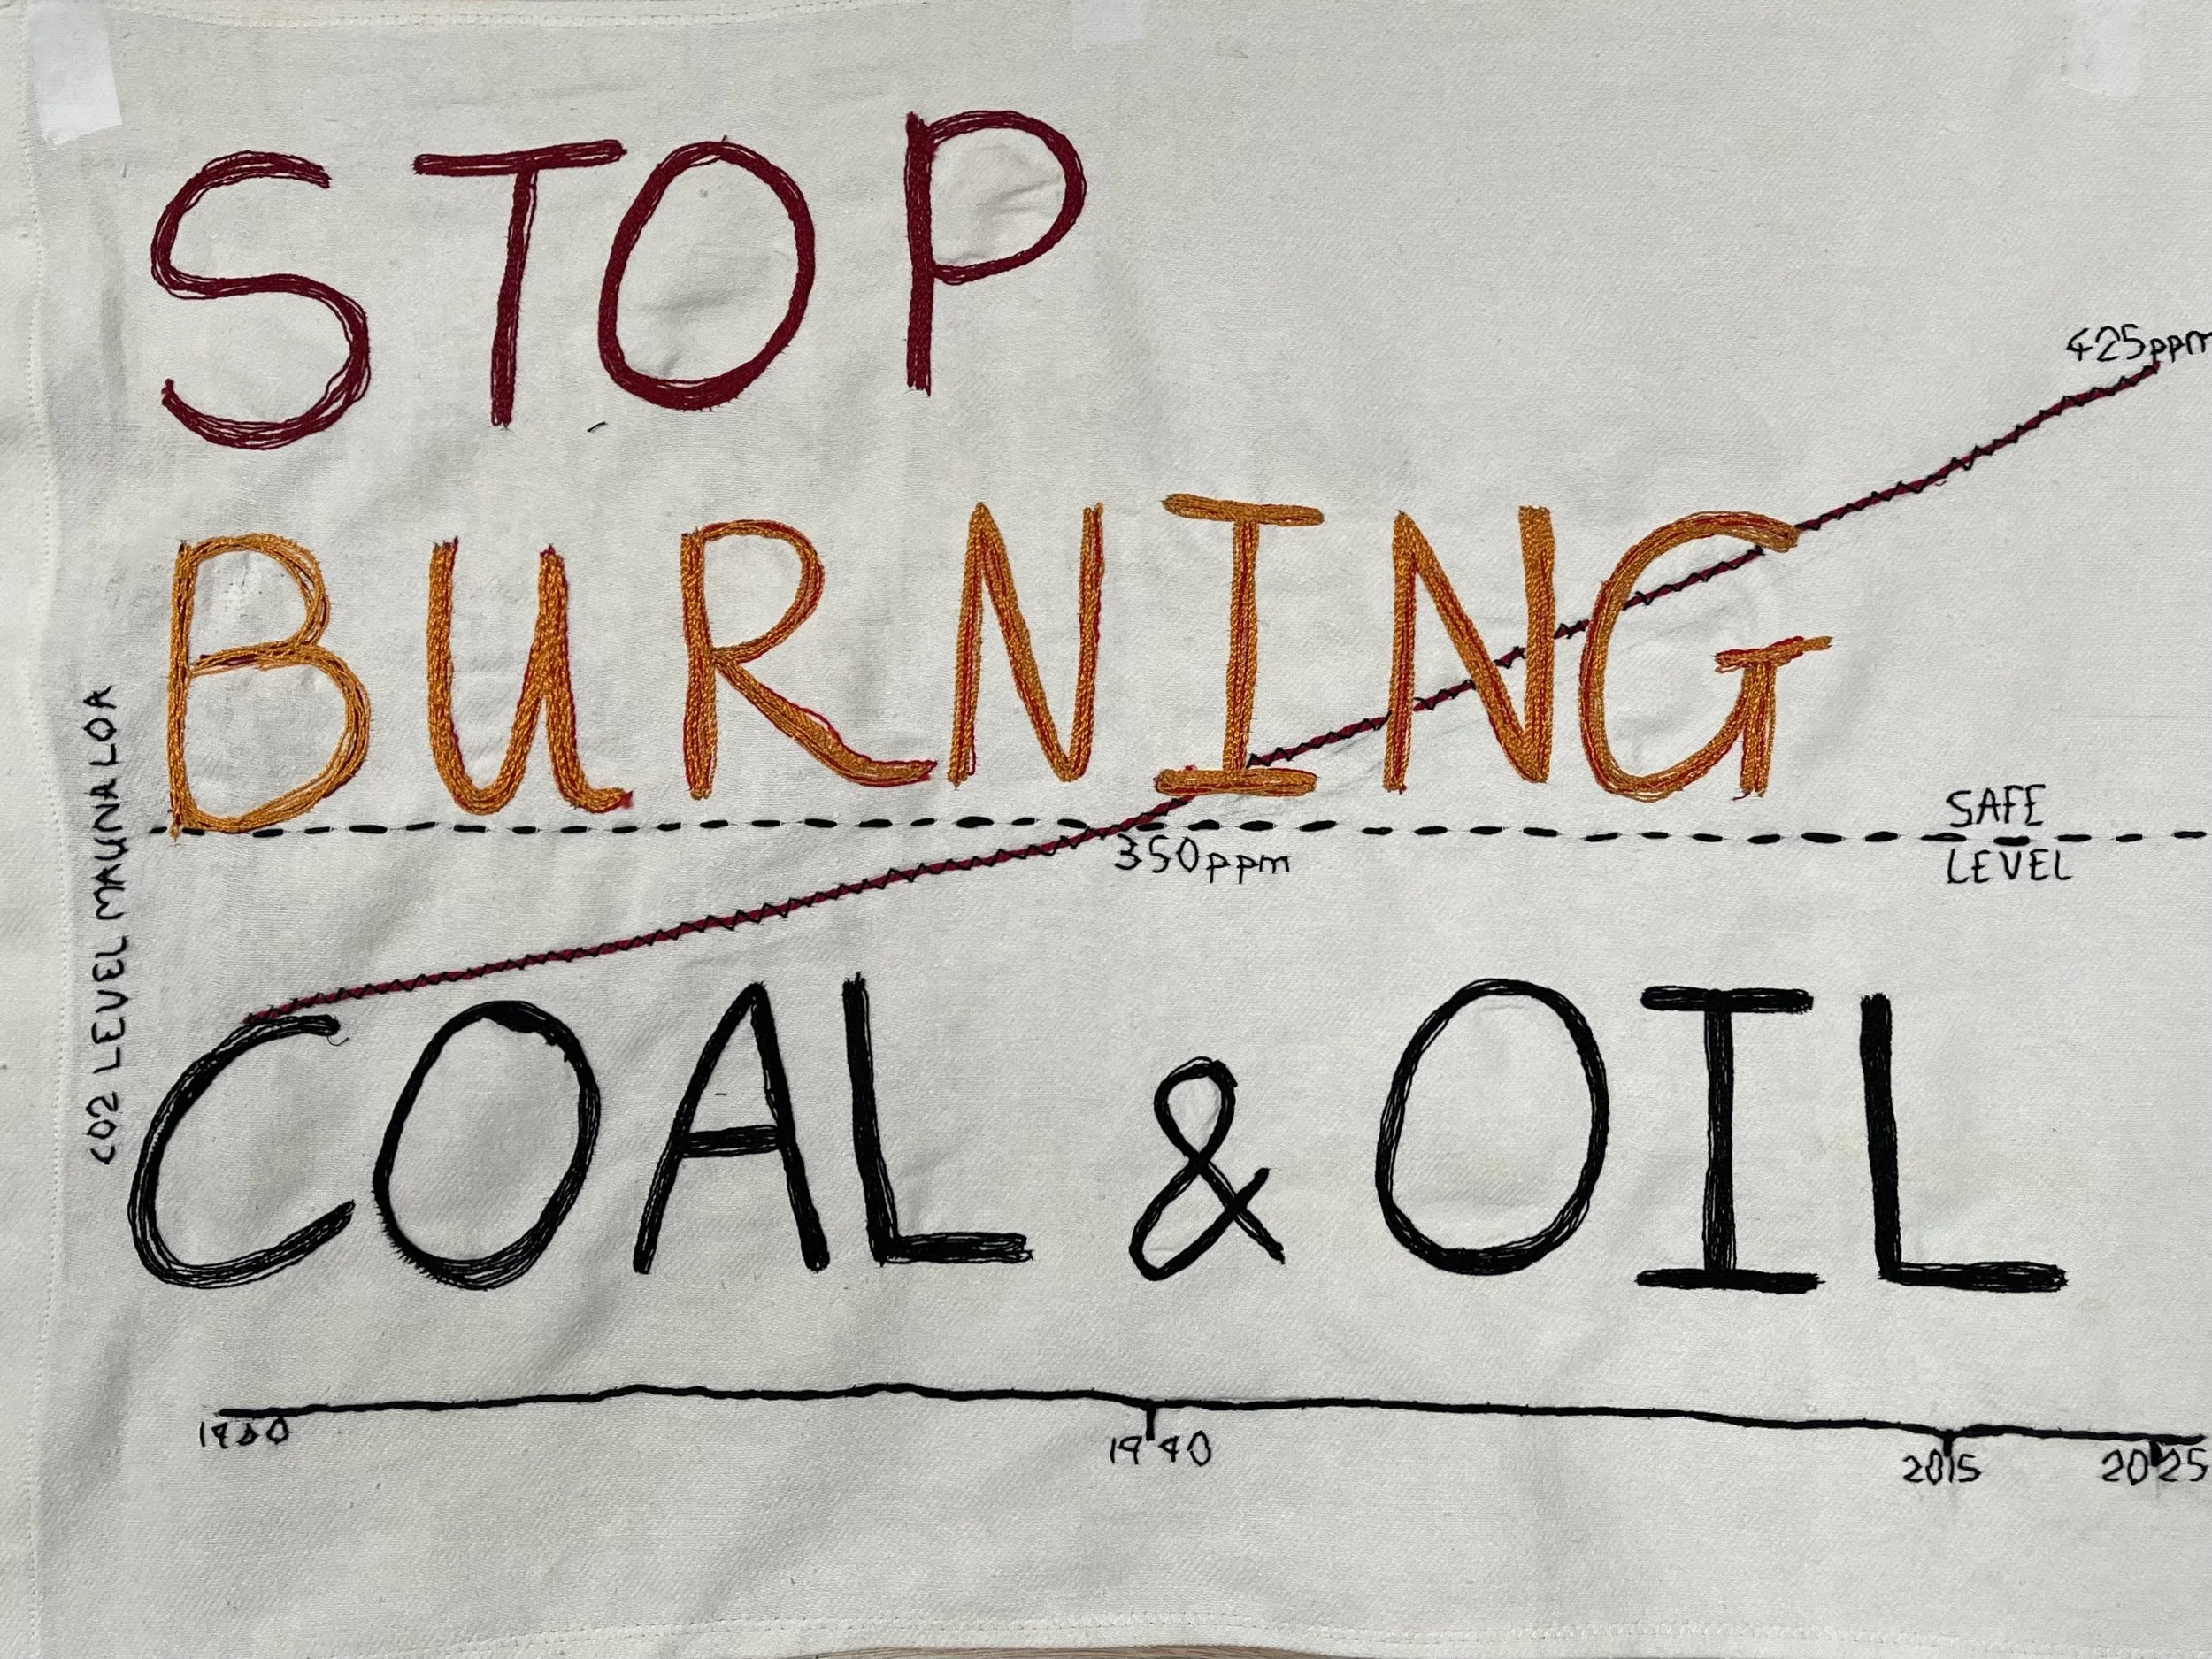 STOP
425ppm
BURNING
SAFE
LEVEL
350ppm
CO2 LEVEL MAUNA LOA
COAL & OIL
1960
1990
2015
2025